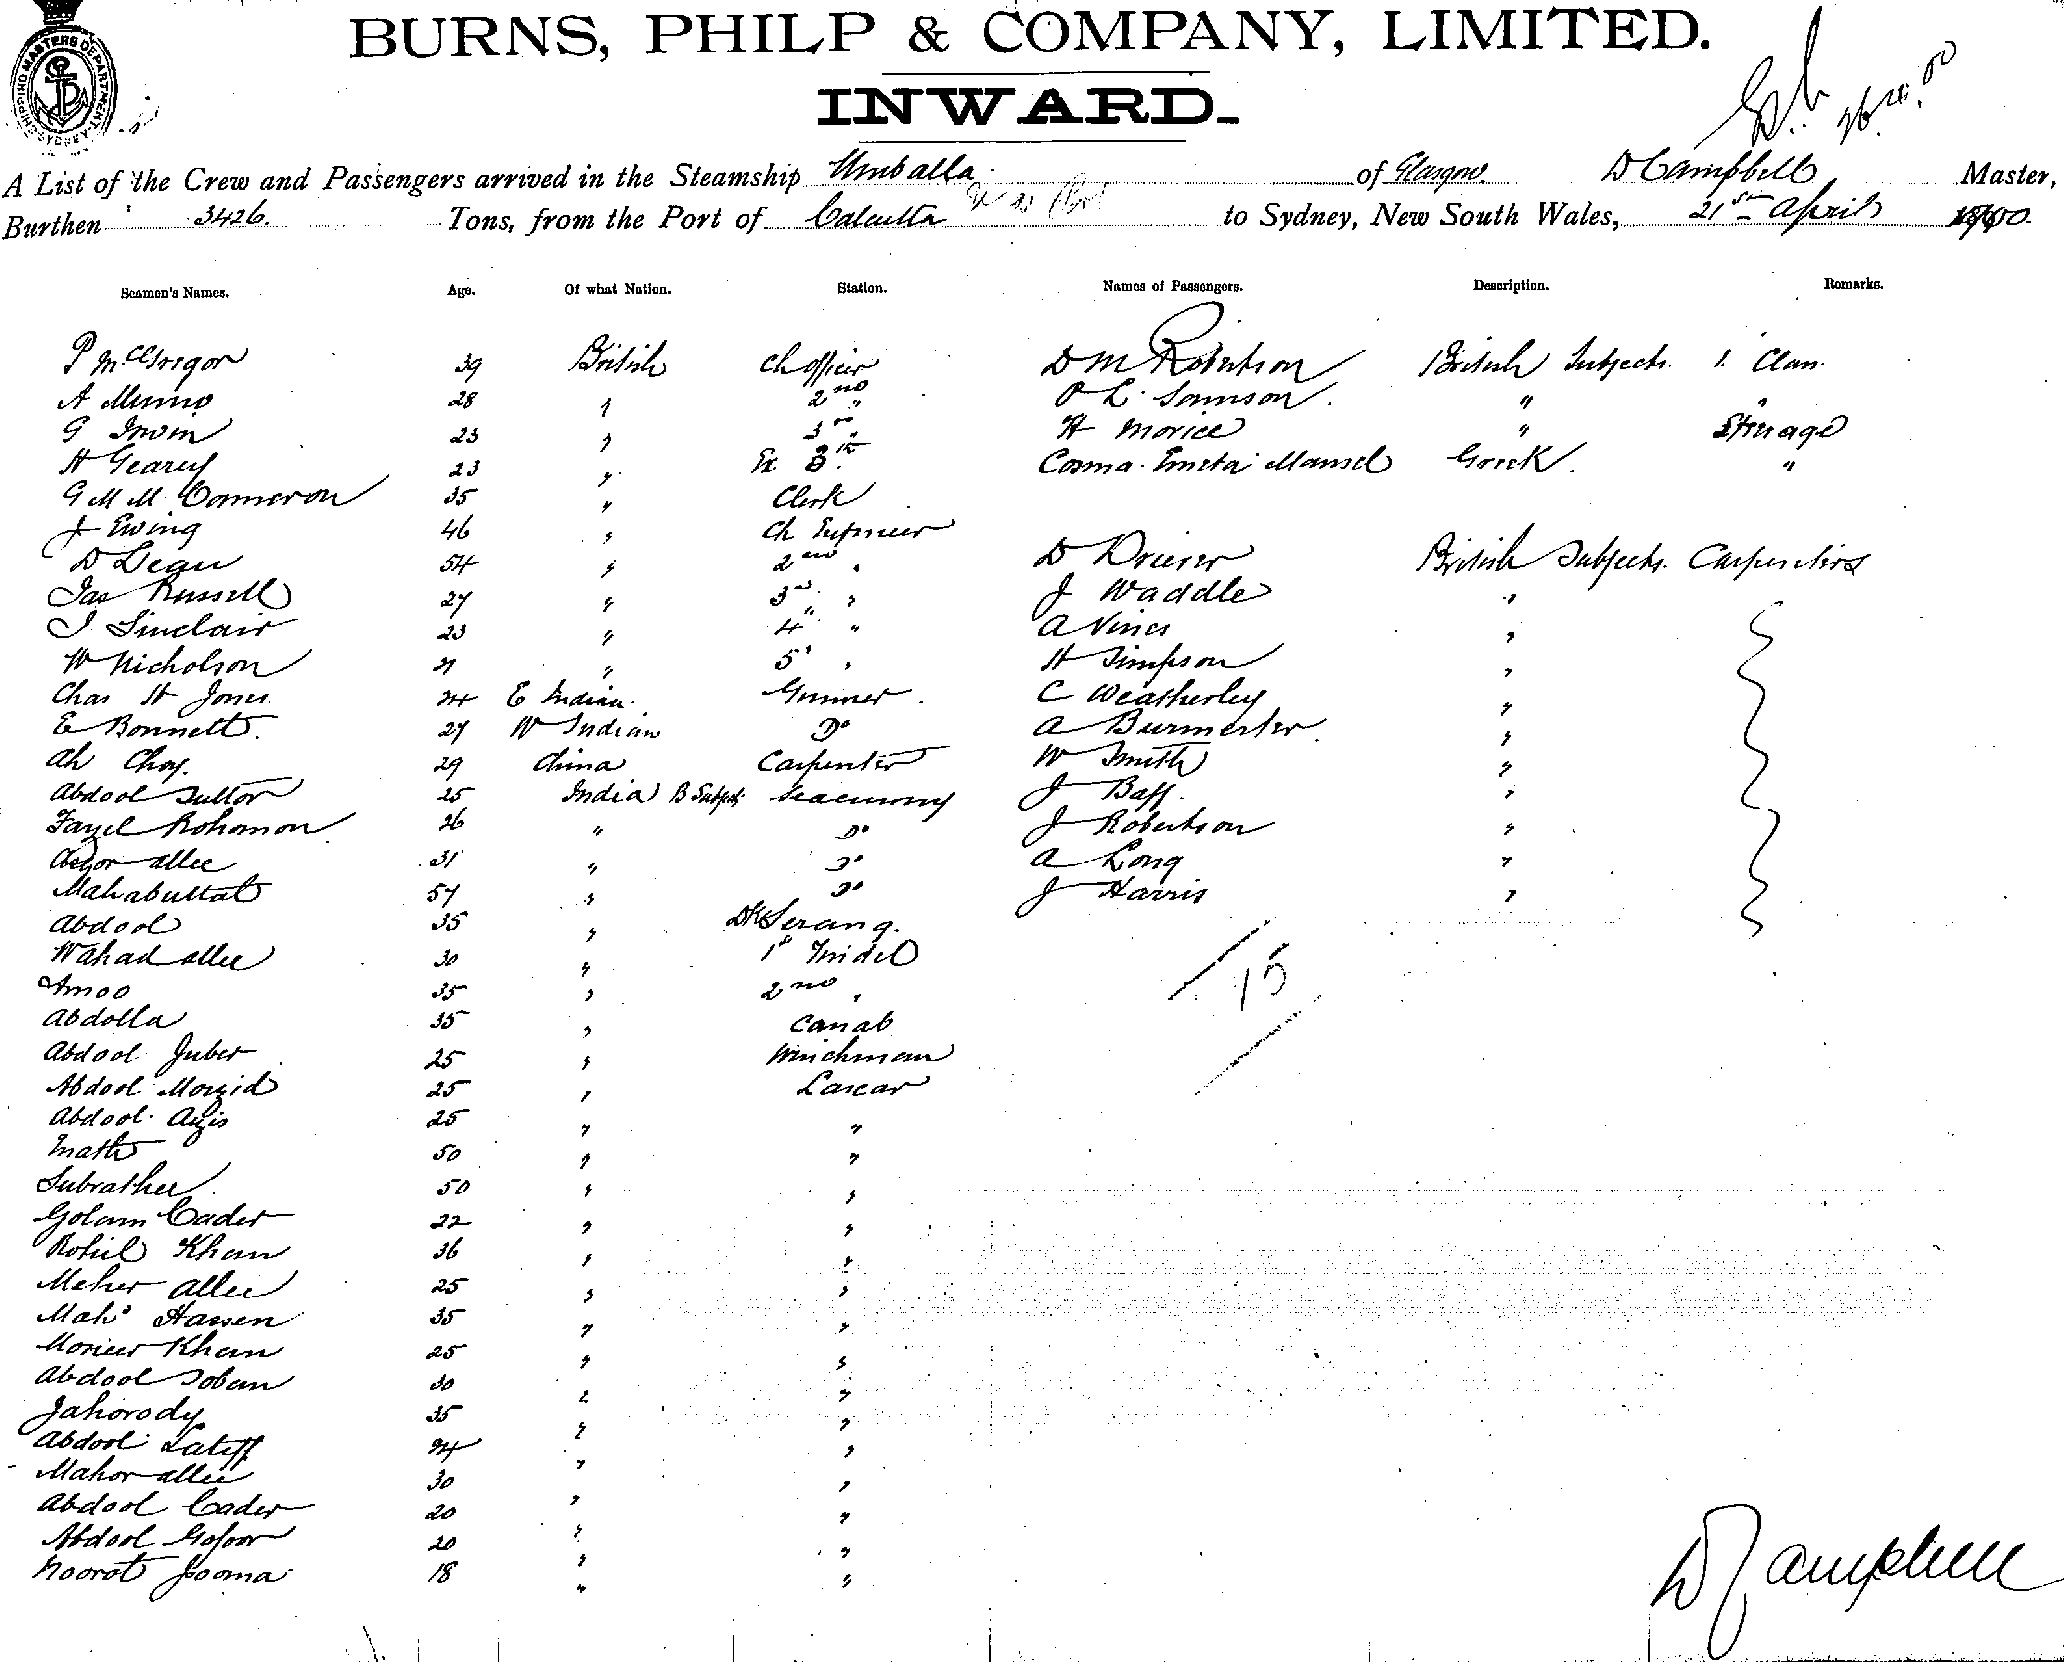 BURNS, PHILP & COMPANY, LIMITED.
INWARD.
A List of the Crew and Passengers arrived in the Steamship Umballa of Glasgow D Campbell Master,
Burthen 3426. Tons, from the Port of Calcutta to Sydney, New South Wales, 21st April 1900.
Seamen's Names. Age. Of what Nation. Station. Names of Passengers. Description. Remarks.
P McGregor 39 British Ch Officer D M Robertson British Subjects. 1. Class.
A Munro 28 " 2nd " O L. Samson. " "
G Irwin 23 " 3rd " H Morice " Steerage
H Gearey 23 " Ex 3rd Mansel Greek. "
G M M Cameron 35 " Clerk
J Ewing 46 " Ch Engineer
D Dean 54 " 2nd " D British Subjects. Carpenters
Jas Russell 27 " 3rd " J Waddle "
J. Sinclair 23 " 4 " A Vines "
W Nicholson 21 " 5 " H Simpson "
Chas H Jones 24 E Indian. Gunner. C Weatherley "
E Bonnett. 27 W Indian Do A Burmester. "
Ah Choy. 29 China Carpenter W Smith "
Abdool Suttor 25 India B Subject Seacunny J Baff. "
Fazel Rohomon 26 " Do J Robertson "
Asgor allee 31 " Do A Long "
Mahabullat 57 " Do J Harris "
Abdool 35 " Dk Serang.
Wahad allee 30 " 1st Tindel
Amoo 35 " 2nd "
Abdolla 35 " Cassab
15
Abdool Juber 25 " Winchman
Abdool Mozid 25 " Lascar
Abdool Azis 25 " "
50 " "
Subrathee. 50 " "
Golam Cader 22 " "
Rohil Khan 36 " "
Meher allee 25 " "
Mahd Hassen 35 " "
Khan 25 " "
Abdool Soban 30 " "
Jahorody 35 " "
Abdool Latiff 24 " "
Mahor allee 30 " "
Abdool Cader 20 " "
Abdool Gofoor 20 " "
Noorot Jooma 18 " "
D Campbell